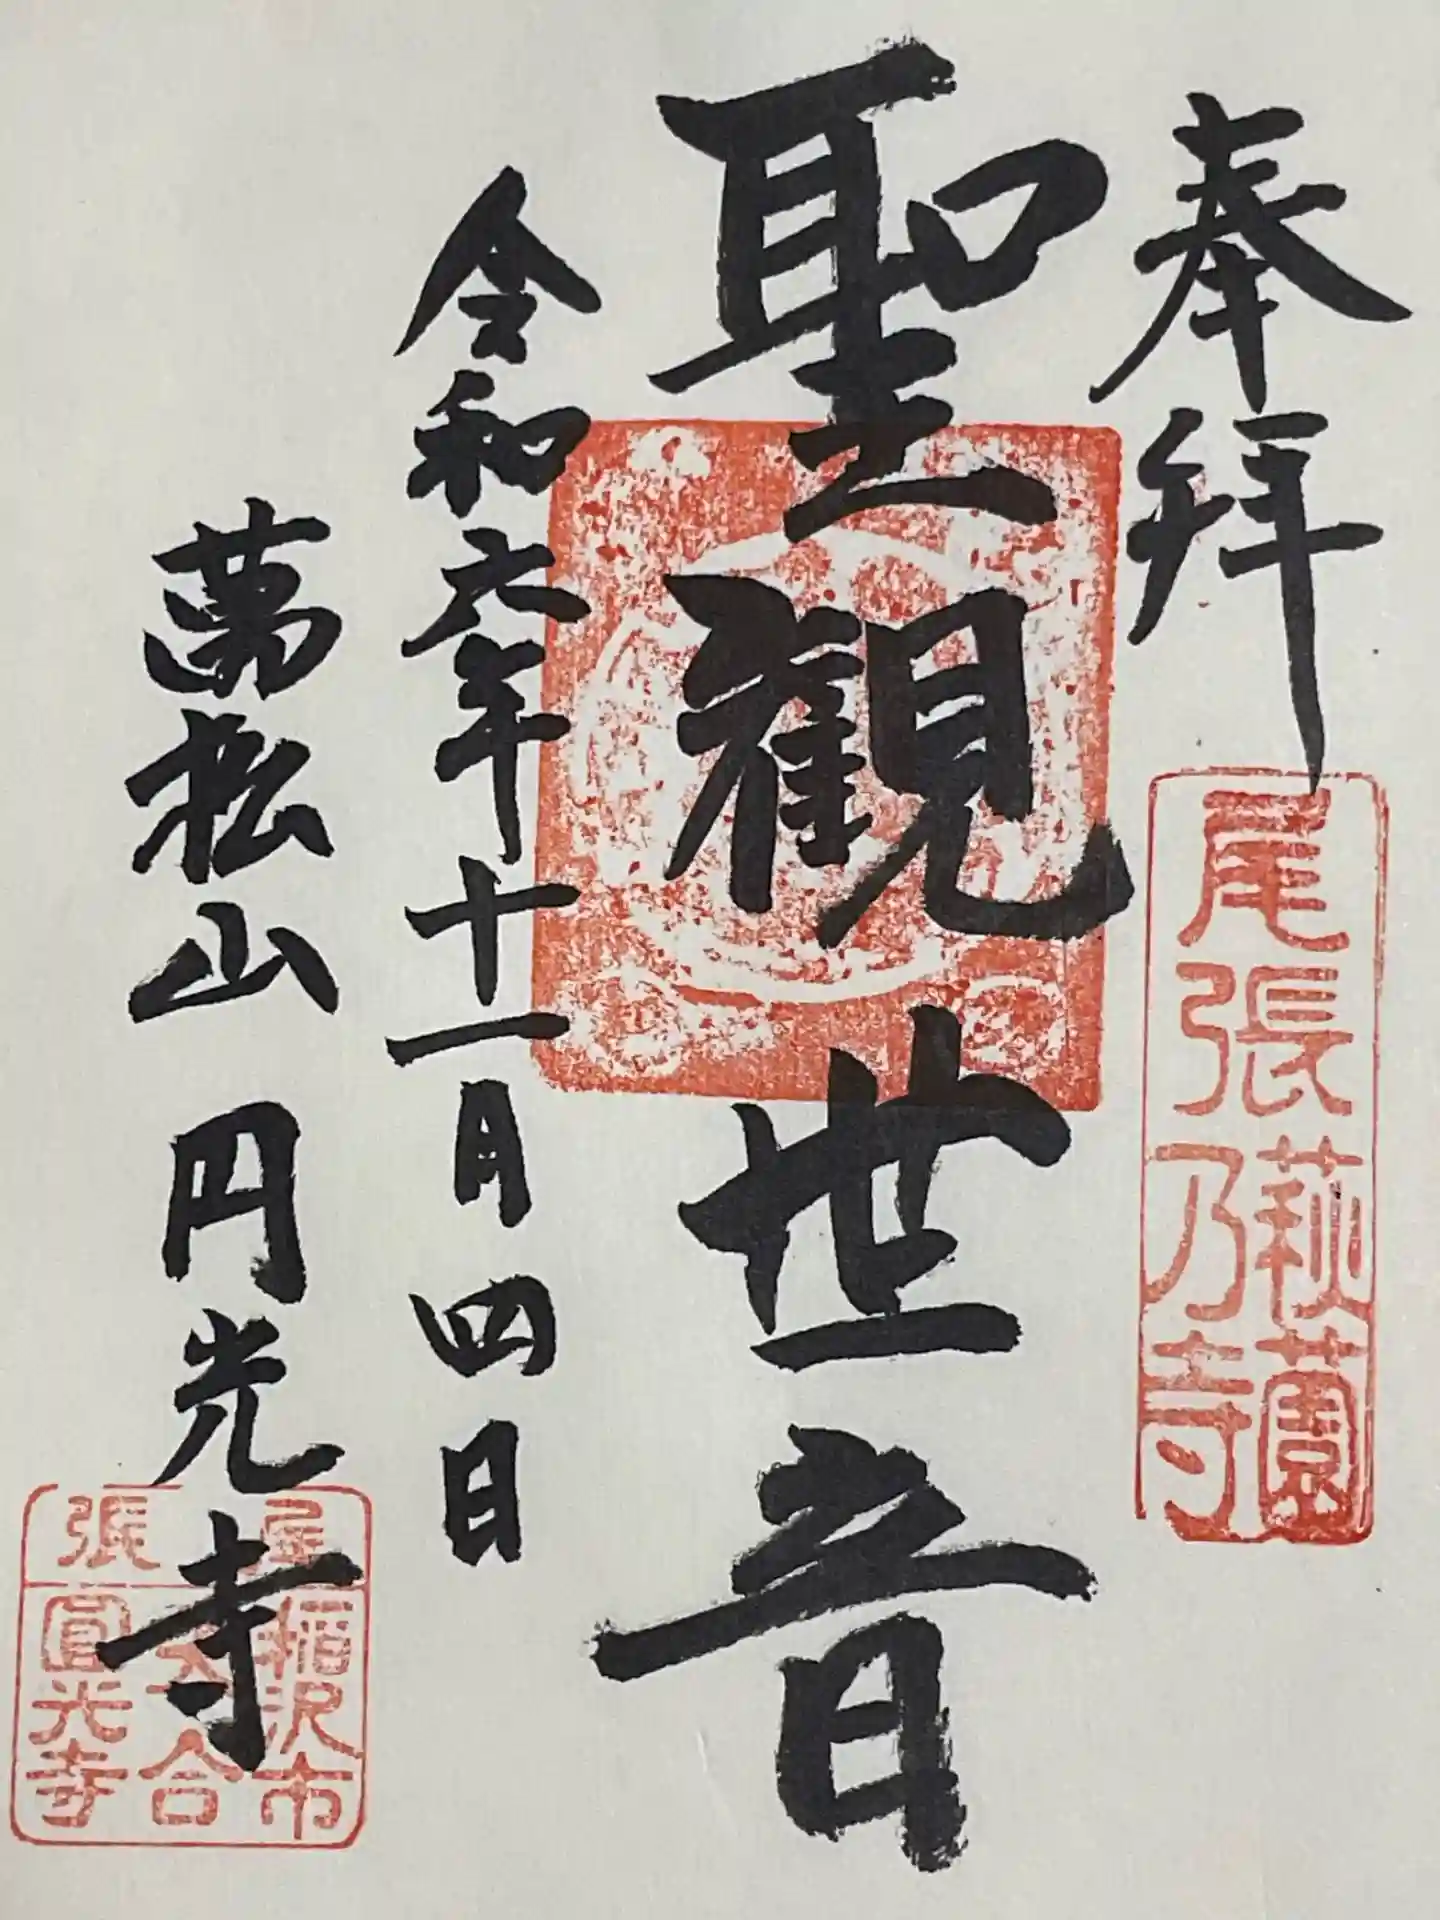 奉拝
尾張萩薗乃寺
聖観世音
令和六年十一月四日
萬松山 円光寺
尾張
稲沢市
合
圓光寺